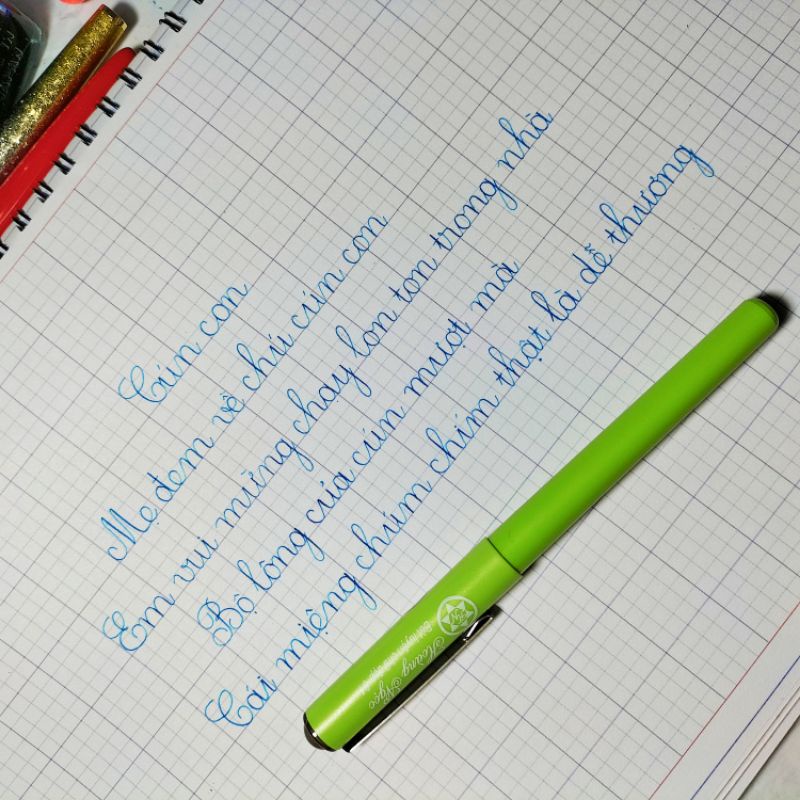 Cún con
Mẹ đem về chú cún con
Em vui mừng chạy lon ton trong nhà
Bộ lông của cún mượt mà
Cái miệng chúm chím thật là dễ thương
Hoàng Ngọc